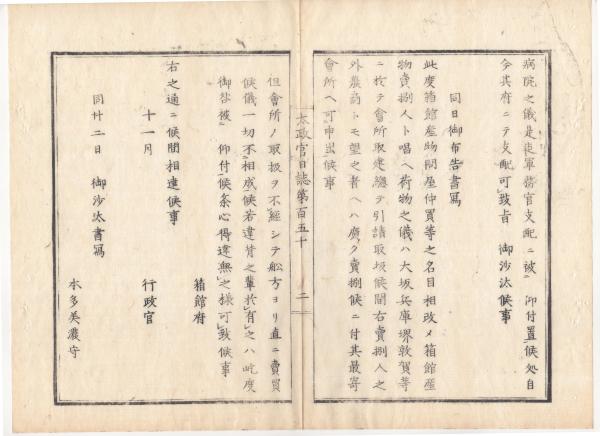 病院之儀是迄軍務官支配ニ被仰付置候処自
今其府ニテ支配可致旨 御沙汰候事
同日御布告書寫
此度箱館産物問屋仲買等之名目相改メ箱館産
物賣捌人ト唱ヘ荷物之儀ハ大坂兵庫堺敦賀等
ニ於テ會所取建總テ引請取扱候間右賣捌人之
外農商トモ望之者ヘハ廣ク賣捌候ニ付其最寄
會所ヘ可申出候事
太政官日誌第百五十 二
但會所ノ取扱ヲ不經シテ舩方ヨリ直ニ賣買
候儀一切不相成候若違背之輩於有之ハ屹度
御咎被 仰付候条心得違無之様可致候事
右之通ニ候間相達候事
十一月 行政官
箱館府
同廿二日 御沙汰書寫
本多美濃守